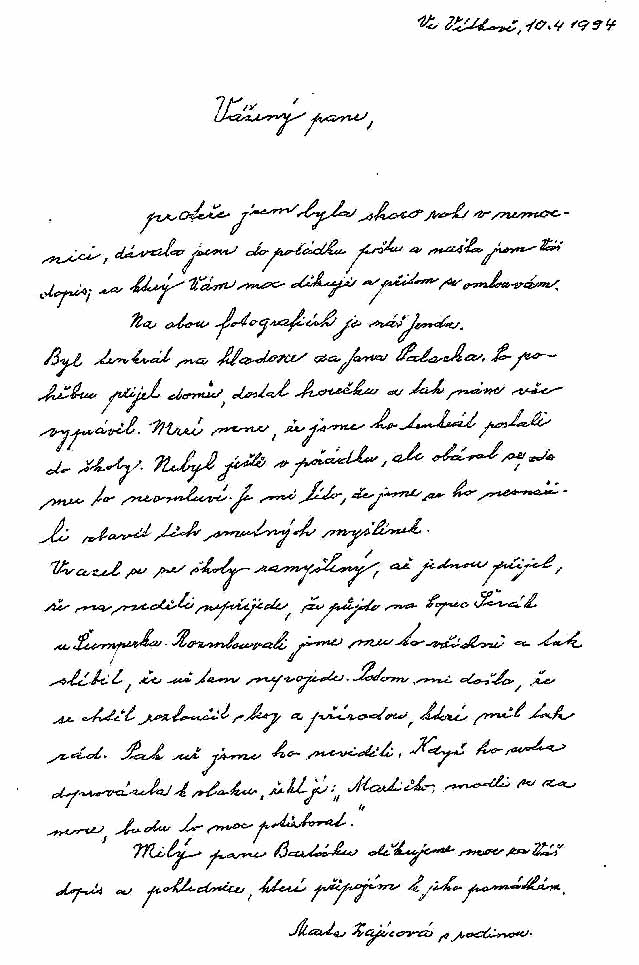 Ve Vítkově, 10.4 1994
Vážený pane,
protože jsem byla skoro rok v nemoc-
nici, dávala jsem do pořádku poštu a našla jsem Váš
dopis; za který Vám moc děkuji a přitom se omlouvám.
Na obou fotografiích je náš Jenda.
Byl tenkrát na hladovce za Jana Palacha. Po po-
hřbu přijel domů, dostal horečku a tak nám vše
vyprávěl. Mrzí mne, že jsme ho tenkrát poslali
do školy. Nebyl ještě v pořádku, ale obával se, že
mu to neomluví. Je mi líto, že jsme se ho nesnaži-
li zbavit těch smutných myšlínek.
Vracel se ze školy zamyšlený, až jednou přijel,
že na neděli nepřijede, že půjde na kopec Šerák
u Šumperka. Rozmlouvali jsme mu to všichni a tak
slíbil, že už tam nepojede. Potom mi došlo, že
se chtěl rozloučit s hory a přírodou, které měl tak
rád. Pak už jsme ho neviděli. Když ho
doprovázela k vlaku, řekl jí: „Martičko, modli se za
mne, budu to moc potřebovat."
Milý pane Bartůšku děkujeme moc za Váš
dopis a pohlednice, které připojím k jeho památkám.
Marta Zajícová s rodinou.